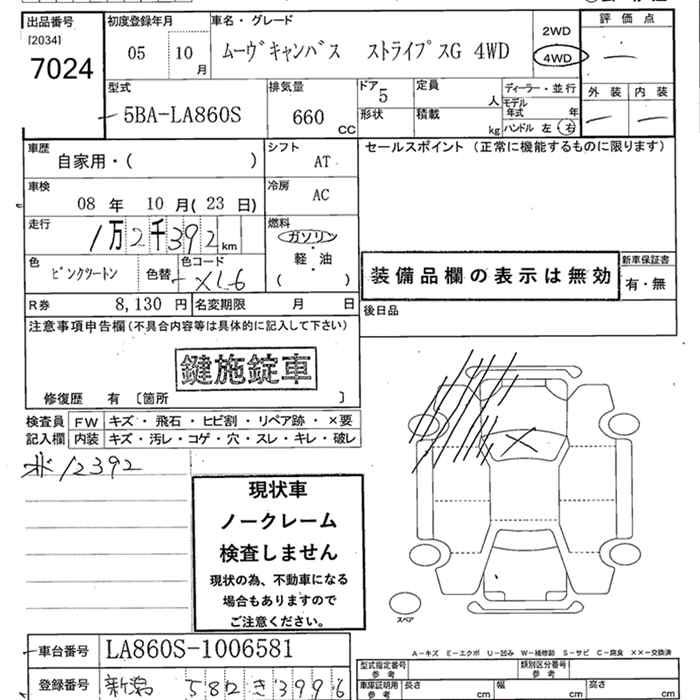 出品番号
[2034]
7024
初度登録年月
05 10
月
車名・グレード
ムーヴキャンバス ストライプスG 4WD
2WD
4WD
評価点
—
外装 内装
— —
型式
5BA-LA860S
排気量
660
CC
ドア
5
形状
定員
人
積載
kg
ディーラー・並行
モデル
年式 年
ハンドル 左・右
車歴
自家用・( )
シフト
AT
車検
08 年 10 月( 23 日)
冷房
AC
走行
1万2千392 km
燃料
ガソリン
・
軽・油
( )
色
ピンクツートン
色替
色コード
XL6
R券 8,130 円
名変期限 月 日
セールスポイント (正常に機能するものに限ります)
装備品欄の表示は無効
新車保証書
有・無
後日品
注意事項申告欄(不具合内容等は具体的に記入して下さい)
鍵施錠車
修復歴 有 〔箇所 〕
検査員 FW キズ・飛石・ヒビ割・リペア跡・×要
記入欄 内装 キズ・汚レ・コゲ・穴・スレ・キレ・破レ
12392
現状車
ノークレーム
検査しません
現状の為、不動車になる
場合もありますので
ご注意ください。
スペア
A-キズ E-エクボ U-凹み W-補修跡 S-サビ C-腐食 ××-交換済
車台番号 LA860S-1006581
登録番号 新潟 582 き 3996
型式指定番号
参考
類別区分番号
参考
車庫証明用
参考
長さ cm
幅 cm
高さ cm